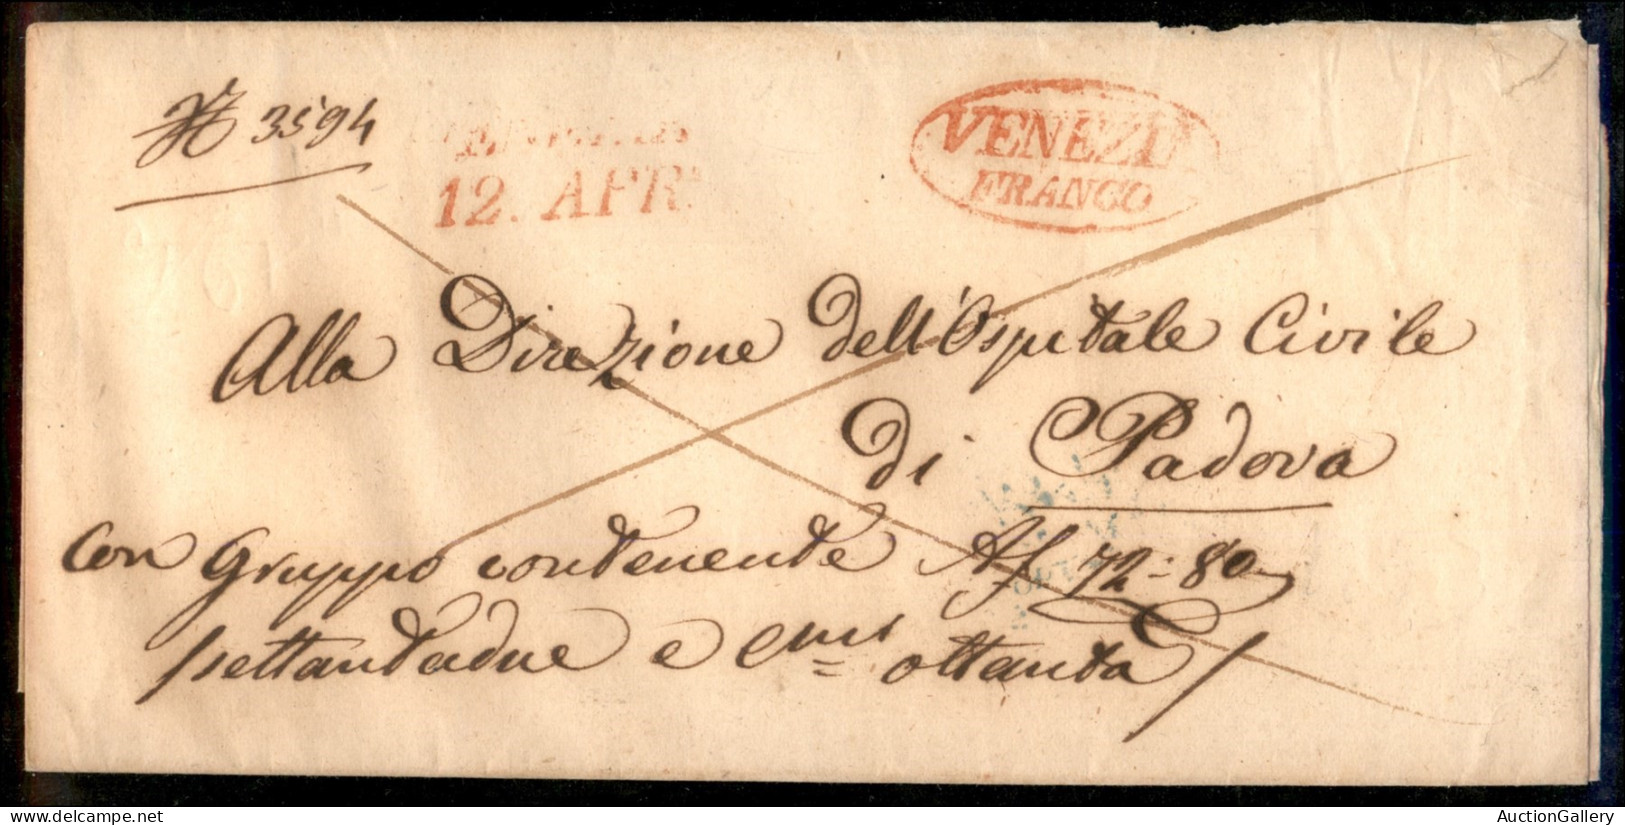 № 3594
12. APR.
VENEZIA
FRANCO
Alla Direzione dell'Ospitale Civile
di Padova
con gruppo contenente Af 72:80
settantadue e cmi ottanta
AuctionGallery